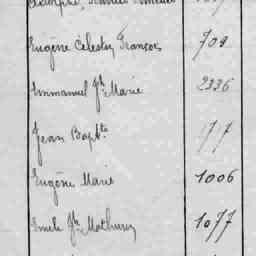 Eugène Célestin François 709
Emmanuel Jh Marie 2336
Jean Bapte 717
Eugène Marie 1006
Emile Jh Mathurin 1077